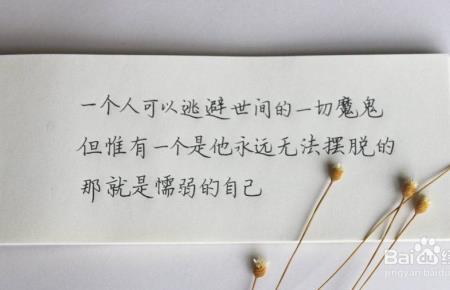 一个人可以逃避世间的一切魔鬼
但惟有一个是他永远无法摆脱的
那就是懦弱的自己
Bai
jingyan.baidu.